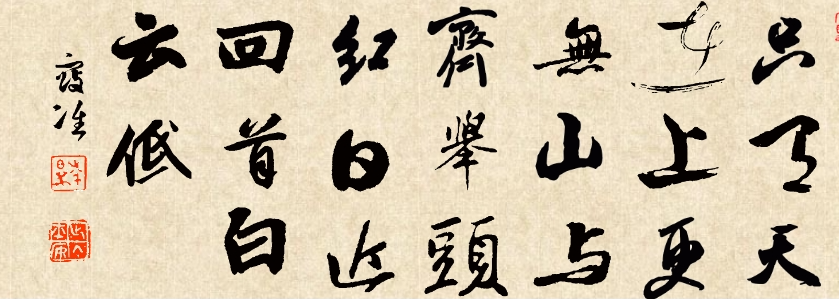 只有天
在上更
無山与
齊舉頭
红日近
回首白
云低
寇准